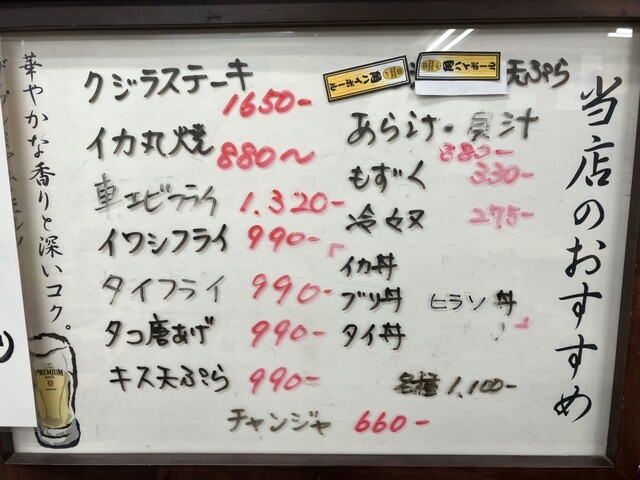 当店のおすすめ
クジラステーキ
1650-
イカ丸焼 880〜
車エビフライ 1.320-
イワシフライ 990-
タイフライ 990-
タコ唐あげ 990-
キス天ぷら 990-
チャンジャ 660-
角ハイボール
角ハイボール
天ぷら
あらけ・貝汁
880-
もずく 330-
冷奴 275-
イカ丼
ブリ丼 ヒラソ丼
タイ丼
各種 1,100-
華やかな香りと深いコク。
PREMIUM